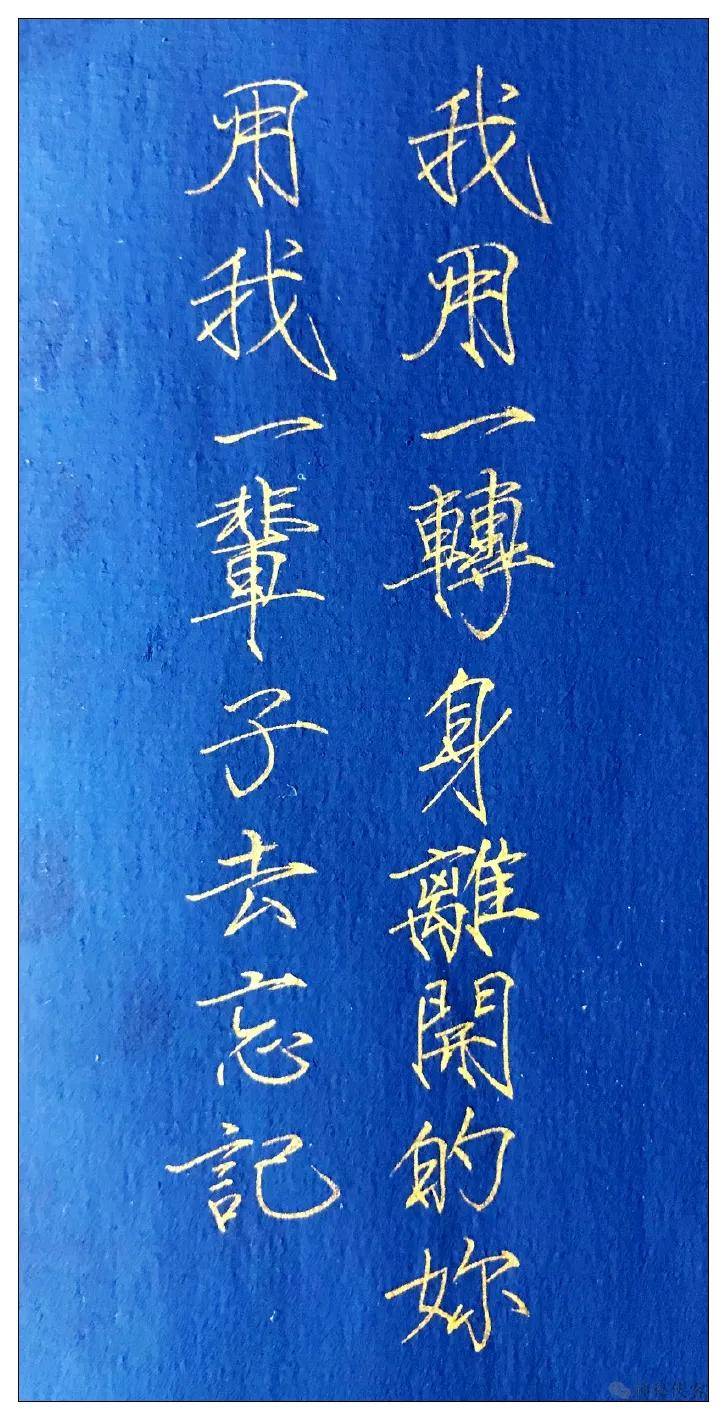 我用一轉身離開的妳
用我一輩子去忘記